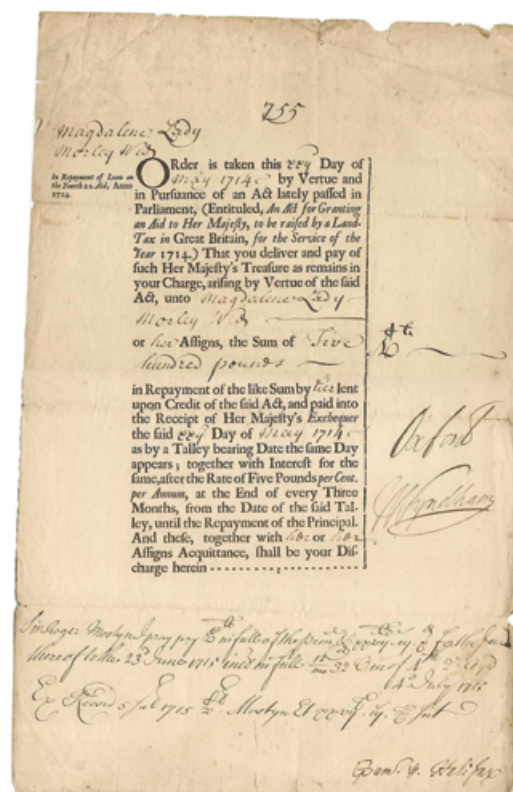 755
Magdalene Lady
Morley Wid
In Repayment of Loan on
the Fourth 2s. Aid, Anno
1714.
ORder is taken this xxy Day of
May 1714 by Vertue and
in Pursuance of an Act lately passed in
Parliament, (Entituled, An Act for Granting
an Aid to Her Majesty, to be raised by a Land-
Tax in Great Britain, for the Service of the
Year 1714.) That you deliver and pay of
such Her Majesty's Treasure as remains in
your Charge, arising by Vertue of the said
Act, unto Magdalene Lady
Morley Wid
or her Assigns, the Sum of Five
hundred pounds
in Repayment of the like Sum by her lent
upon Credit of the said Act, and paid into
the Receipt of Her Majesty's Exchequer
the said xxy Day of May 1714
as by a Talley bearing Date the same Day
appears; together with Interest for the
same, after the Rate of Five Pounds per Cent.
per Annum, at the End of every Three
Months, from the Date of the said Tal-
ley, until the Repayment of the Principal.
And these, together with her or her
Assigns Acquittance, shall be your Dis-
charge herein
Oxford
Wyndham
Sir Roger Mostyn pray pay in full of the
thereof to the 23d June 1715 in full
4th July 1715
Ex Record 5 Jul 1715 Mostyn
Halifax